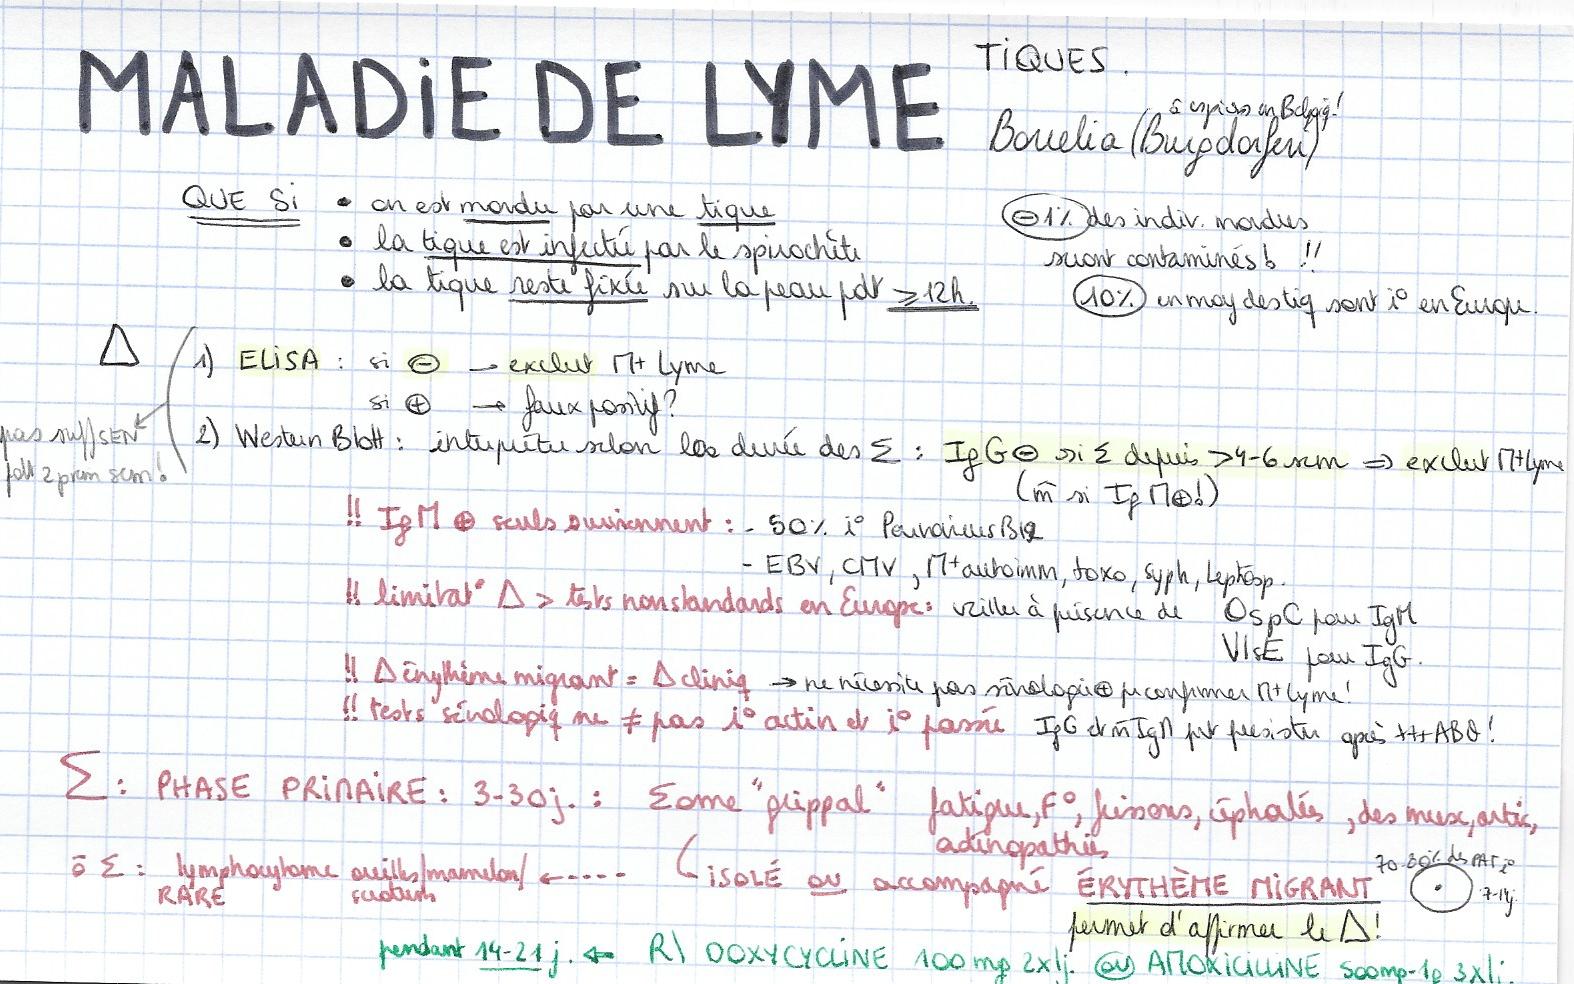 MALADIE DE LYME
TIQUES.
5 espèces en Belgiq!
Borrelia (Burgdorferi)
QUE Si • on est mordu par une tique
• la tique est infectée par le spirochète
• la tique reste fixée sur la peau pdt ≥12h.
⊖1% des indiv. mordus
seront contaminés !!
10% en moy des tiq sont i° en Europe.
Δ
1) ELiSA : si ⊖ → exclut M+ Lyme
si ⊕ → faux positif?
pas suff SEN
pdt 2 prem sem!
2) Western Blott : interpréter selon la durée des Σ : IgG⊖ si Σ depuis >4-6 sem ⇒ exclut M+Lyme
(m̄ si IgM⊕!)
!! IgM ⊕ seuls surviennent : - 50% i° Parvovirus B19
- EBV, CMV, M+ autoimm, toxo, syph, leptosp.
!! limitat° Δ > tests non standards en Europe : veiller à présence de OspC pour IgM
VlsE pour IgG.
!! Δ érythème migrant = Δ cliniq → ne nécessite pas sérologie⊕ pr confirmer M+ Lyme!
!! tests sérologiq ne ≠ pas i° active et i° passée IgG et m̄ IgM pvt persister après ttt ABθ!
Σ : PHASE PRiMAiRE : 3-30j. : Σome "grippal" fatigue, F°, frissons, céphalées, dlrs musc, artic,
adénopathies
ō Σ : lymphocytome oreilles/mamelon/ ←---- iSOLÉ ou accompagné ÉRYTHÈME MiGRANT
RARE scrotum
70-80% des PAT i°
7-14j.
permet d'affirmer le Δ!
pendant 14-21j. ⇐ R\ DOXYCYCLiNE 100mg 2x/j. ou AMOXiCiLLiNE 500mg-1g 3x/j.